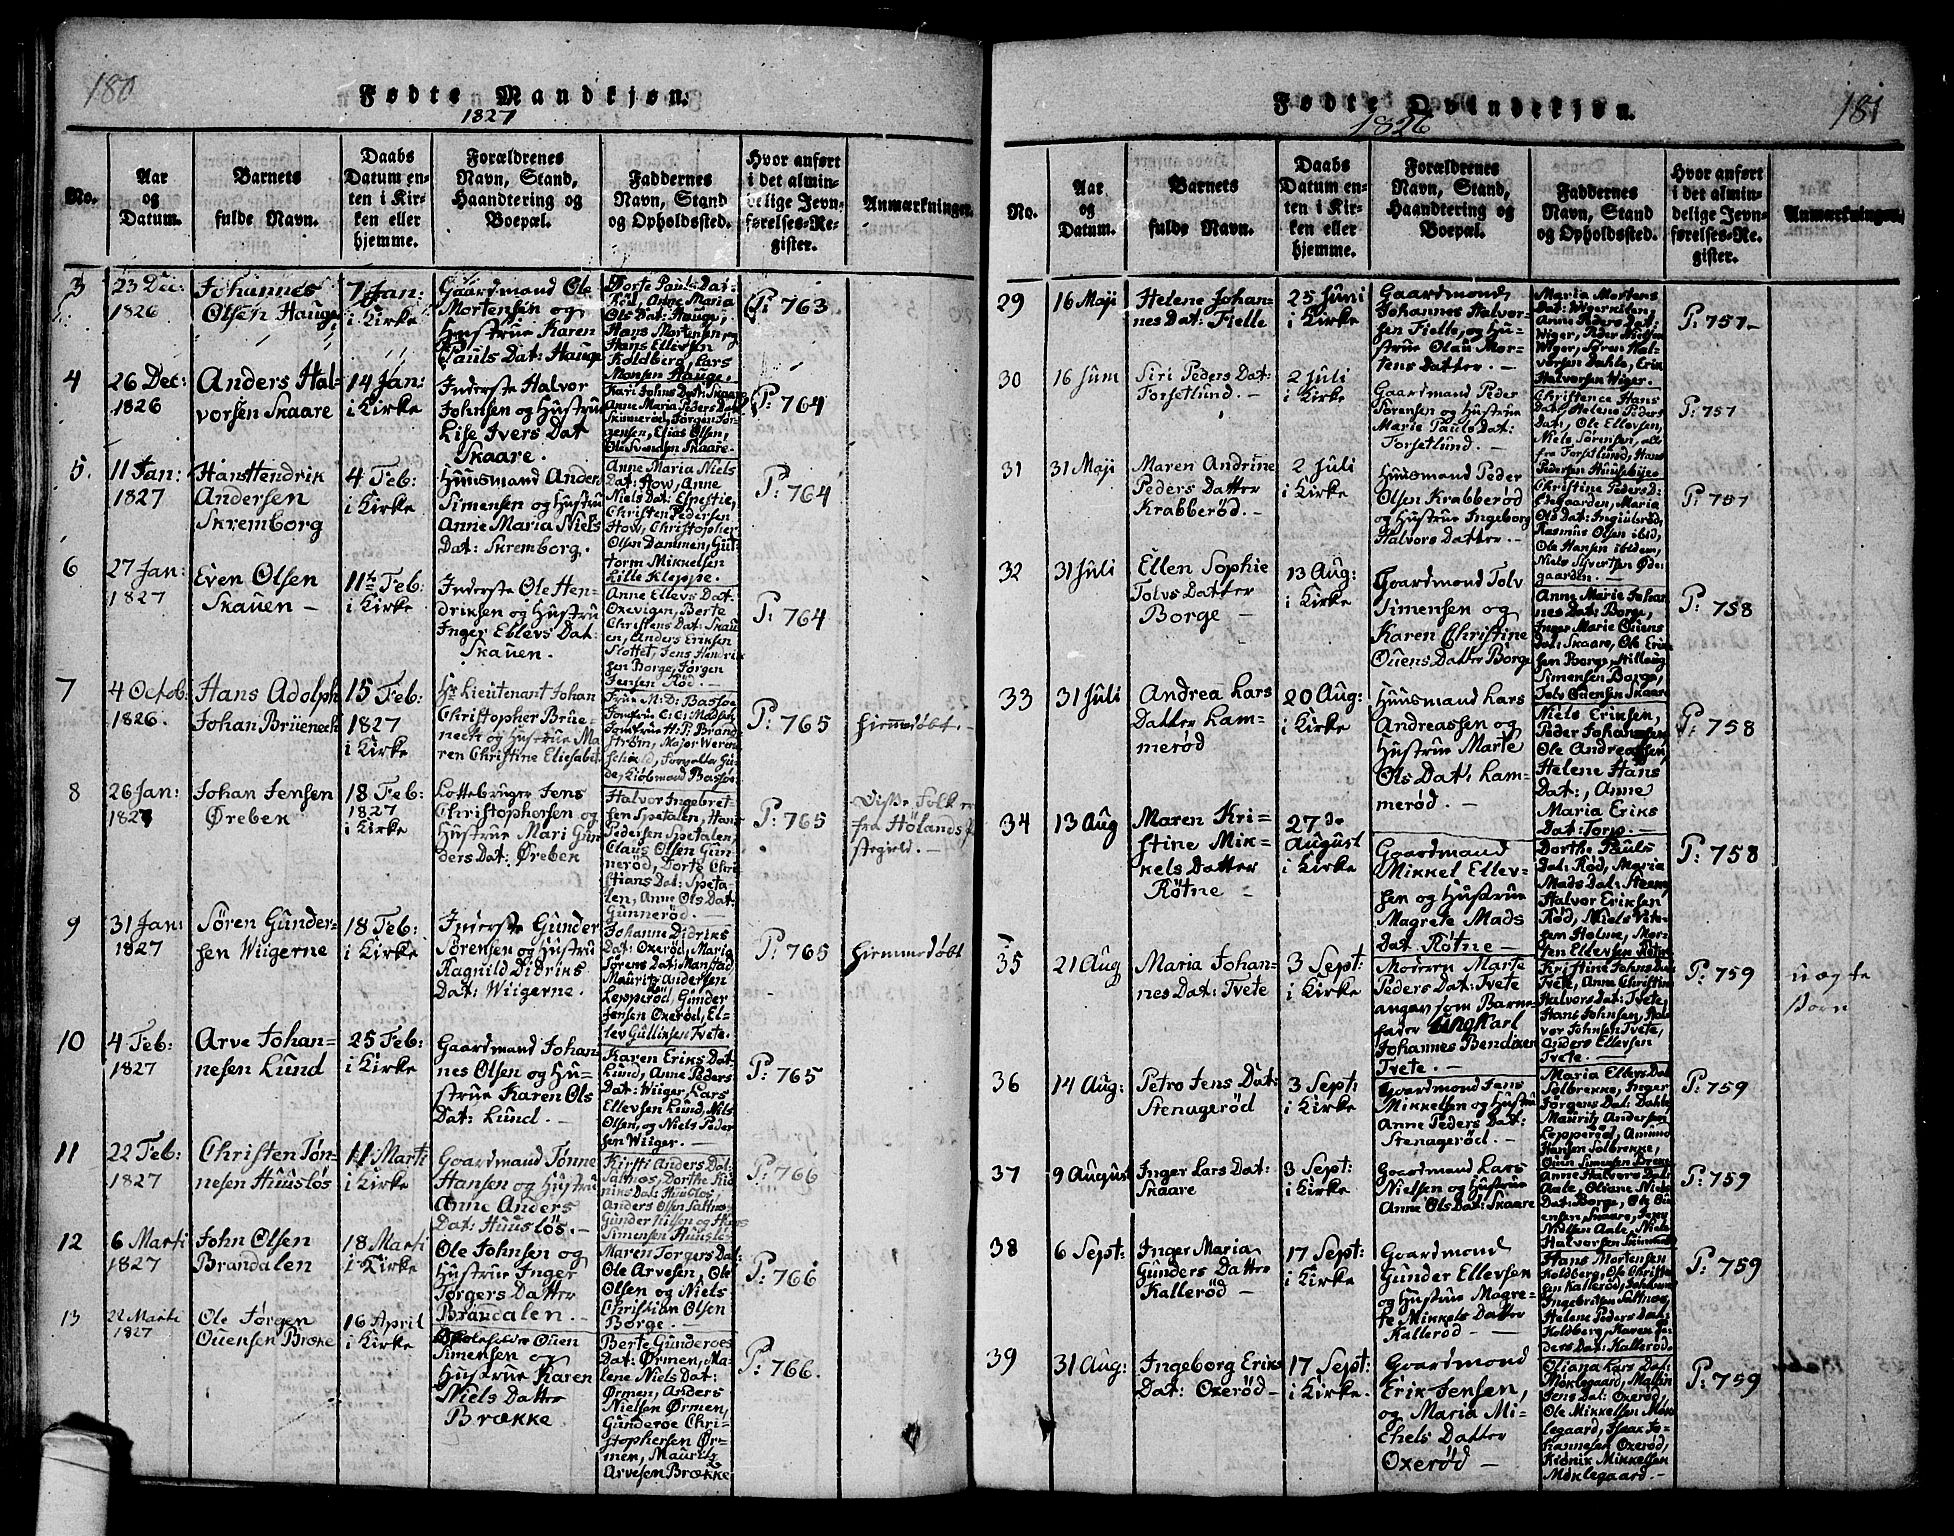 180
Fødte Mandkjøn.
1827
No.
Aar
og
Datum.
Barnets
fulde Navn.
Daabs
Datum en-
ten i Kir-
ken eller
hjemme.
Forældrenes
Navn, Stand,
Haandtering og
Boepæl.
Faddernes
Navn, Stand
og Opholdssted.
Hvor anført
i det almin-
delige Jevn-
førelses-Re-
gister.
Anmærkninger.
3
23 Dec:
1826
Johannes
Olsen Hauge
7 Jan:
i Kirke
Gaardmand Ole
Mortensen og
Hustrue Karen
Pauls Dat: Hauge
Dorte Pauls Dat:
Röd, Anne Maria
Ols Dat: Hauge,
Hans Mortensen og
Hans Ellevsen
Koldberg, Lars
Monsen Hauge.
P: 763
4
26 Dec:
1826
Anders Hal-
vorsen Skaare
14 Jan:
i Kirke
Inderste Halvor
Johnsen og Hustrue
Lise Ivers Dat
Skaare.
Kari Johns Dat: Skaare
Anne Maria Peders Dat
Skinnerød, Jørgen Jør-
gensen, Elias Olsen,
Ole Svendsen Skaare.
P: 764
5.
11 Jan:
1827
Hans Hendrik
Andersen
Skremborg
4 Feb:
i Kirke
Huusmand Anders
Simensen og Hustrue
Anne Maria Niels
Dat: Skremborg.
Anne Maria Niels
Dat: How, Anne
Niels Dat: Elnestie,
Christen Pedersen
How, Christopher
Olsen Dammen, Gut-
torm Mikkelsen
Lille Kleppe.
P: 764
6
27 Jan:
1827
Even Olsen
Skauen –
11te Feb:
i Kirke
Inderste Ole Hen-
driksen og Hustrue
Inger Eblevs Dat:
Skauen.
Anne Ellevs Dat
Oxevigen, Berte
Christens Dat: Skau-
en, Anders Eriksen
Slottet, Jens Hendrik
sen Borge, Jørgen
Jensen Röd.
P: 764
7
4 Octob:
1826.
Hans Adolph
Johan Brüenech
15 Feb:
1827
i Kirke
Hr Lieutenant Johan
Christopher Brüe-
nech og Hustrue Ma
ren Christine Eliesabet
Frue M: D: Bassøe
Jomfrue C: C: Madsen
Jomfrue H: P: Brand
strøm, Major Weren
schiold, Forvalter Gun
de, Kiöbmand Bassøe
P: 765
Hiemmedøbt.
8
26 Jan:
1827
Johan Jensen
Ørebek
18 Feb:
1827
i Kirke
Lottebruger Jens
Christophersen og
Hustrue Mari Gun
ders Dat: Ørebek
Halvor Ingebret-
sen Spetalen, Hans
Pedersen Spetalen,
Claus Olsen Gun-
nerød, Dorte Chri
stians Dat: Speta-
len, Anne Ols Dat
Gunnerød.
P: 765
Disse Folk er
fra Hölands P
stegield. –
9
31 Jan:
1827
Søren Gunder-
sen Wiigerne
18 Feb:
i Kirke
Inderste Gunder
Sørensen og Hustrue
Ragnild Didriks
Dat: Wiigerne.
Johanne Didriks
Dat: Oxerød, Maria
Sørens Dat: Manstad
Mauritz Andersen
Lepperød, Gunder
Jensen Oxerød, El-
lev Gulliksen Tvete.
P: 765
Hiemmedøbt
10
4 Feb:
1827
Arve Johan-
nesen Lund
25 Feb:
i Kirke
Gaardmand Johan
nes Olsen og Hu-
strue Karen Ols
Dat: Lund.
Karen Eriks Dat
Lund, Anne Peders
Dat: Wiiger, Lars
Ellevsen Lund, Nils
Olsen, og Niels Peder
sen Wiiger.
P: 765
11
22 Feb:
1827
Christen Tøn-
nesen Huusløs
11 Marti
i Kirke
Gaardmand Tønne
Hansen og Hustrue
Anne Anders
Dat: Huusløs.
Kirsti Anders Dat:
Saltnøs, Dorthe Rid
niks Dat: Huusløs,
Anders Olsen Saltnøs
Gunder Nilsen og Hans
Simensen Huusløs
P: 766
12
6 Marti
1827
John Olsen
Brandalen
18 Marti
i Kirke
Ole Johnsen og
Hustrue Inger
Torgers Datter
Brandalen.
Maren Torgers Dat:
Ole Arvesen, Ole
Olsen og Niels
Christian Olsen
Borge.
P: 766
13
22 Marti
1827
Ole Jørgen
Ouensen Bræke
16 April
i Kirke
Ouen
Simensen og
Hustrue Karen
Niels Datter
Brække
Berte Gunderoes
Dat: Ørmen, Ma-
lene Niels Dat:
Ørmen, Anders
Nielsen Ørmen,
Gunderoe Chri-
stophersen Ør-
men, Mauritz
Arvesen Brække
P: 766.
181
Fødte Qvindekjøn.
1826
No.
Aar
og
Datum.
Barnets
fulde Navn.
Daabs
Datum en-
ten i Kir-
ken eller
hjemme.
Forældrenes
Navn, Stand,
Haandtering og
Boepæl.
Faddernes
Navn, Stand
og Opholdssted.
Hvor anført
i det almin-
delige Jevn-
førelses-Re-
gister.
Anmærkninger.
29
16 Maji
Helene Johan-
nes Dat: Fielle
25 Juni
i Kirke
Gaardmand
Johannes Halvor-
sen Fielle, og Hu-
strue Olau Mor-
tens Datter.
Maria Mortens
Dat: Wigerelten,
Anne Peders Dat
Wiger, Peder Nielsen
Wiger, Sören Hal-
vorsen Dahle, Erik
Halvorsen Wiger.
P: 757
30
16 Juni
Siri Peders Dat:
Torsetlund.
2 Juli
i Kirke
Gaardmand Peder
Sörensen og Hustrue
Marie Pauls Dat:
Torsetlund.
Christence Hans
Dat, Helene Peders
Dat, Ole Ellevsen,
Niels Sørensen, alle
fra Torsetlund, Hans
Pedersen Huusebye
P: 757
31
31 Maji
Maren Andrine
Peders Datter
Krabberød.
2 Juli
i Kirke
Huusmand Peder
Olsen Krabberød
og Hustrue Ingeborg
Halvors Datter.
Christine Peders D:
Ødegaarden, Maria
Ols Dat: Ingiulsrød,
Rasmus Olsen ibid,
Ole Hansen ibidem,
Niels Syvertsen Øde-
gaarden.
P: 757
32
31 Juli
Ellen Sophie
Tolvs Datter
Borge
13 Aug:
i Kirke
Gaardmand Tolv
Simensen og
Karen Christine
Ouens Datter Borge
Anne Marie Johan
nes Dat: Borge,
Inger Marie Ouens
Dat: Skaare, Ole Erik
sen Borge, Hilloug
Simensen Borge,
Tolv Ouensen Skaare
P: 758
33
31 Juli
Andrea Lars
Datter Lam-
merød
20 Aug:
i Kirke
Huusmand Lars
Andreassen og
Hustrue Marte
Ols Dat: Lam-
merød.
Niels Eriksen,
Peder Johannesen,
Ole Andreassen,
Helene Hans
Dat:, Anne
Maria Eriks
Dat: Torp.
P: 758
34
13 Aug
Maren Kri-
stine Mik-
kels Datter
Røtne
27de
August
i Kirke
Gaardmand
Mikkel Ellev-
sen og Hustrue
Magrete Mads
Dat: Røtne
Dorthe Pauls
Dat: Rød, Maria
Mads Dat: Steene
Halvor Eriksen
Rød, Niels Nite-
sen Holme, Mor-
ten Ellevsen Røtne
P: 758
35
21 Aug
Maria Johan-
nes Dat: Tvete
3 Sept:
i Kirke
Moderen Marte
Peders Dat: Tvete
angav som Barne-
fader Ungkarl
Johannes Bendixen
Tvete.
Kristine Johns Dat
Tvete, Anne Christine
Halvors Dat: Tvete,
Hans Johnsen, Hal-
vor Johnsen Tvete,
Anders Ellevsen
Tvete.
P: 759
uægte
Barn
36
14 Aug:
Petro Jens Dat:
Stenagerød
3 Sept:
i Kirke
Gaardmand Jens
Mikkelsen og Hustrue
Anne Peders Dat:
Stenagerød.
Maria Ellevs Dat
Solbrekke, Inger
Jørgens Dat: Dahle,
Mauritz Andersen
Lepperød, Amund
Hansen Solbrekke,
Ouen Simensen Brekke
P: 759
37
9 August
Inger Lars Dat:
Skaare
3 Sept:
i Kirke
Gaardmand Lars
Nielsen og Hustrue
Anne Ols Dat: Skaare
Anne Halvors Dat:
Aale, Oliane Niels
Dat: Borge, Ole Ou-
ensen Skaare, Jens
Nielsen Aale, Niels
Halvorsen
P: 759
38
6 Sept:
Inger Maria
Gunders Datter
Kallerød
17 Sept:
i Kirke
Gaardmand
Gunder Ellevsen
og Hustrue Magre-
te Mikkels Datter
Kallerød
Hans Mortensen
Koldberg, Ole Christen
sen Kallerød, Johannes
Ingebritsen Saltnøs,
Helene Peders Dat:
Koldberg, Karen Pe-
ders Dat: Kallerød.
P: 759
39
31 Aug:
Ingeborg Eriks
Dat: Oxerød
17 Sept:
i Kirke.
Gaardmand
Erik Jensen,
og Maria Mi-
chels Datter
Oxerød
Oliana Lars Dat:
Møklegaard, Malin
Jens Dat: Oxerød,
Ole Mikkelsen Møk-
legaard, Isak Jo-
hannesen Oxerød,
Kiönik Mikkelsen
Møklegaard
P: 759